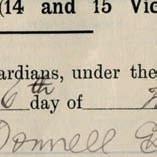 (14 and 15 Vic
ardians, under the
6th day of
Donnell